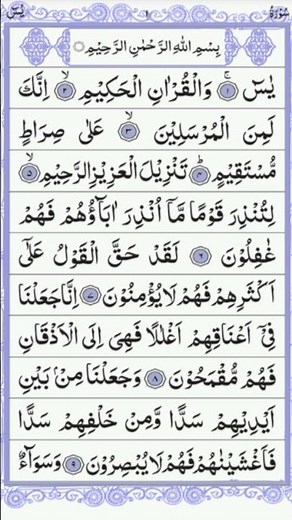 سُوْرَةُ ١ يٰسٓ
بِسْمِ اللهِ الرَّحْمٰنِ الرَّحِيْمِ
يٰسٓ ۚ‏﴿۱﴾ وَالْقُرْاٰنِ الْحَكِيْمِ ۙ‏﴿۲﴾ اِنَّكَ
لَمِنَ الْمُرْسَلِيْنَ ۙ‏﴿۳﴾ عَلٰى صِرَاطٍ
مُّسْتَقِيْمٍ ؕ‏﴿۴﴾ تَنْزِيْلَ الْعَزِيْزِ الرَّحِيْمِ ۙ‏﴿۵﴾
لِتُنْذِرَ قَوْمًا مَّاۤ اُنْذِرَ اٰبَآؤُهُمْ فَهُمْ
غٰفِلُوْنَ ﴿۶﴾ لَقَدْ حَقَّ الْقَوْلُ عَلٰٓى
اَكْثَرِهِمْ فَهُمْ لَا يُؤْمِنُوْنَ ﴿۷﴾ اِنَّا جَعَلْنَا
فِىْۤ اَعْنَاقِهِمْ اَغْلٰلًا فَهِىَ اِلَى الْاَذْقَانِ
فَهُمْ مُّقْمَحُوْنَ ﴿۸﴾ وَجَعَلْنَا مِنْۢ بَيْنِ
اَيْدِيْهِمْ سَدًّا وَّمِنْ خَلْفِهِمْ سَدًّا
فَاَغْشَيْنٰهُمْ فَهُمْ لَا يُبْصِرُوْنَ ﴿۹﴾ وَسَوَآءٌ